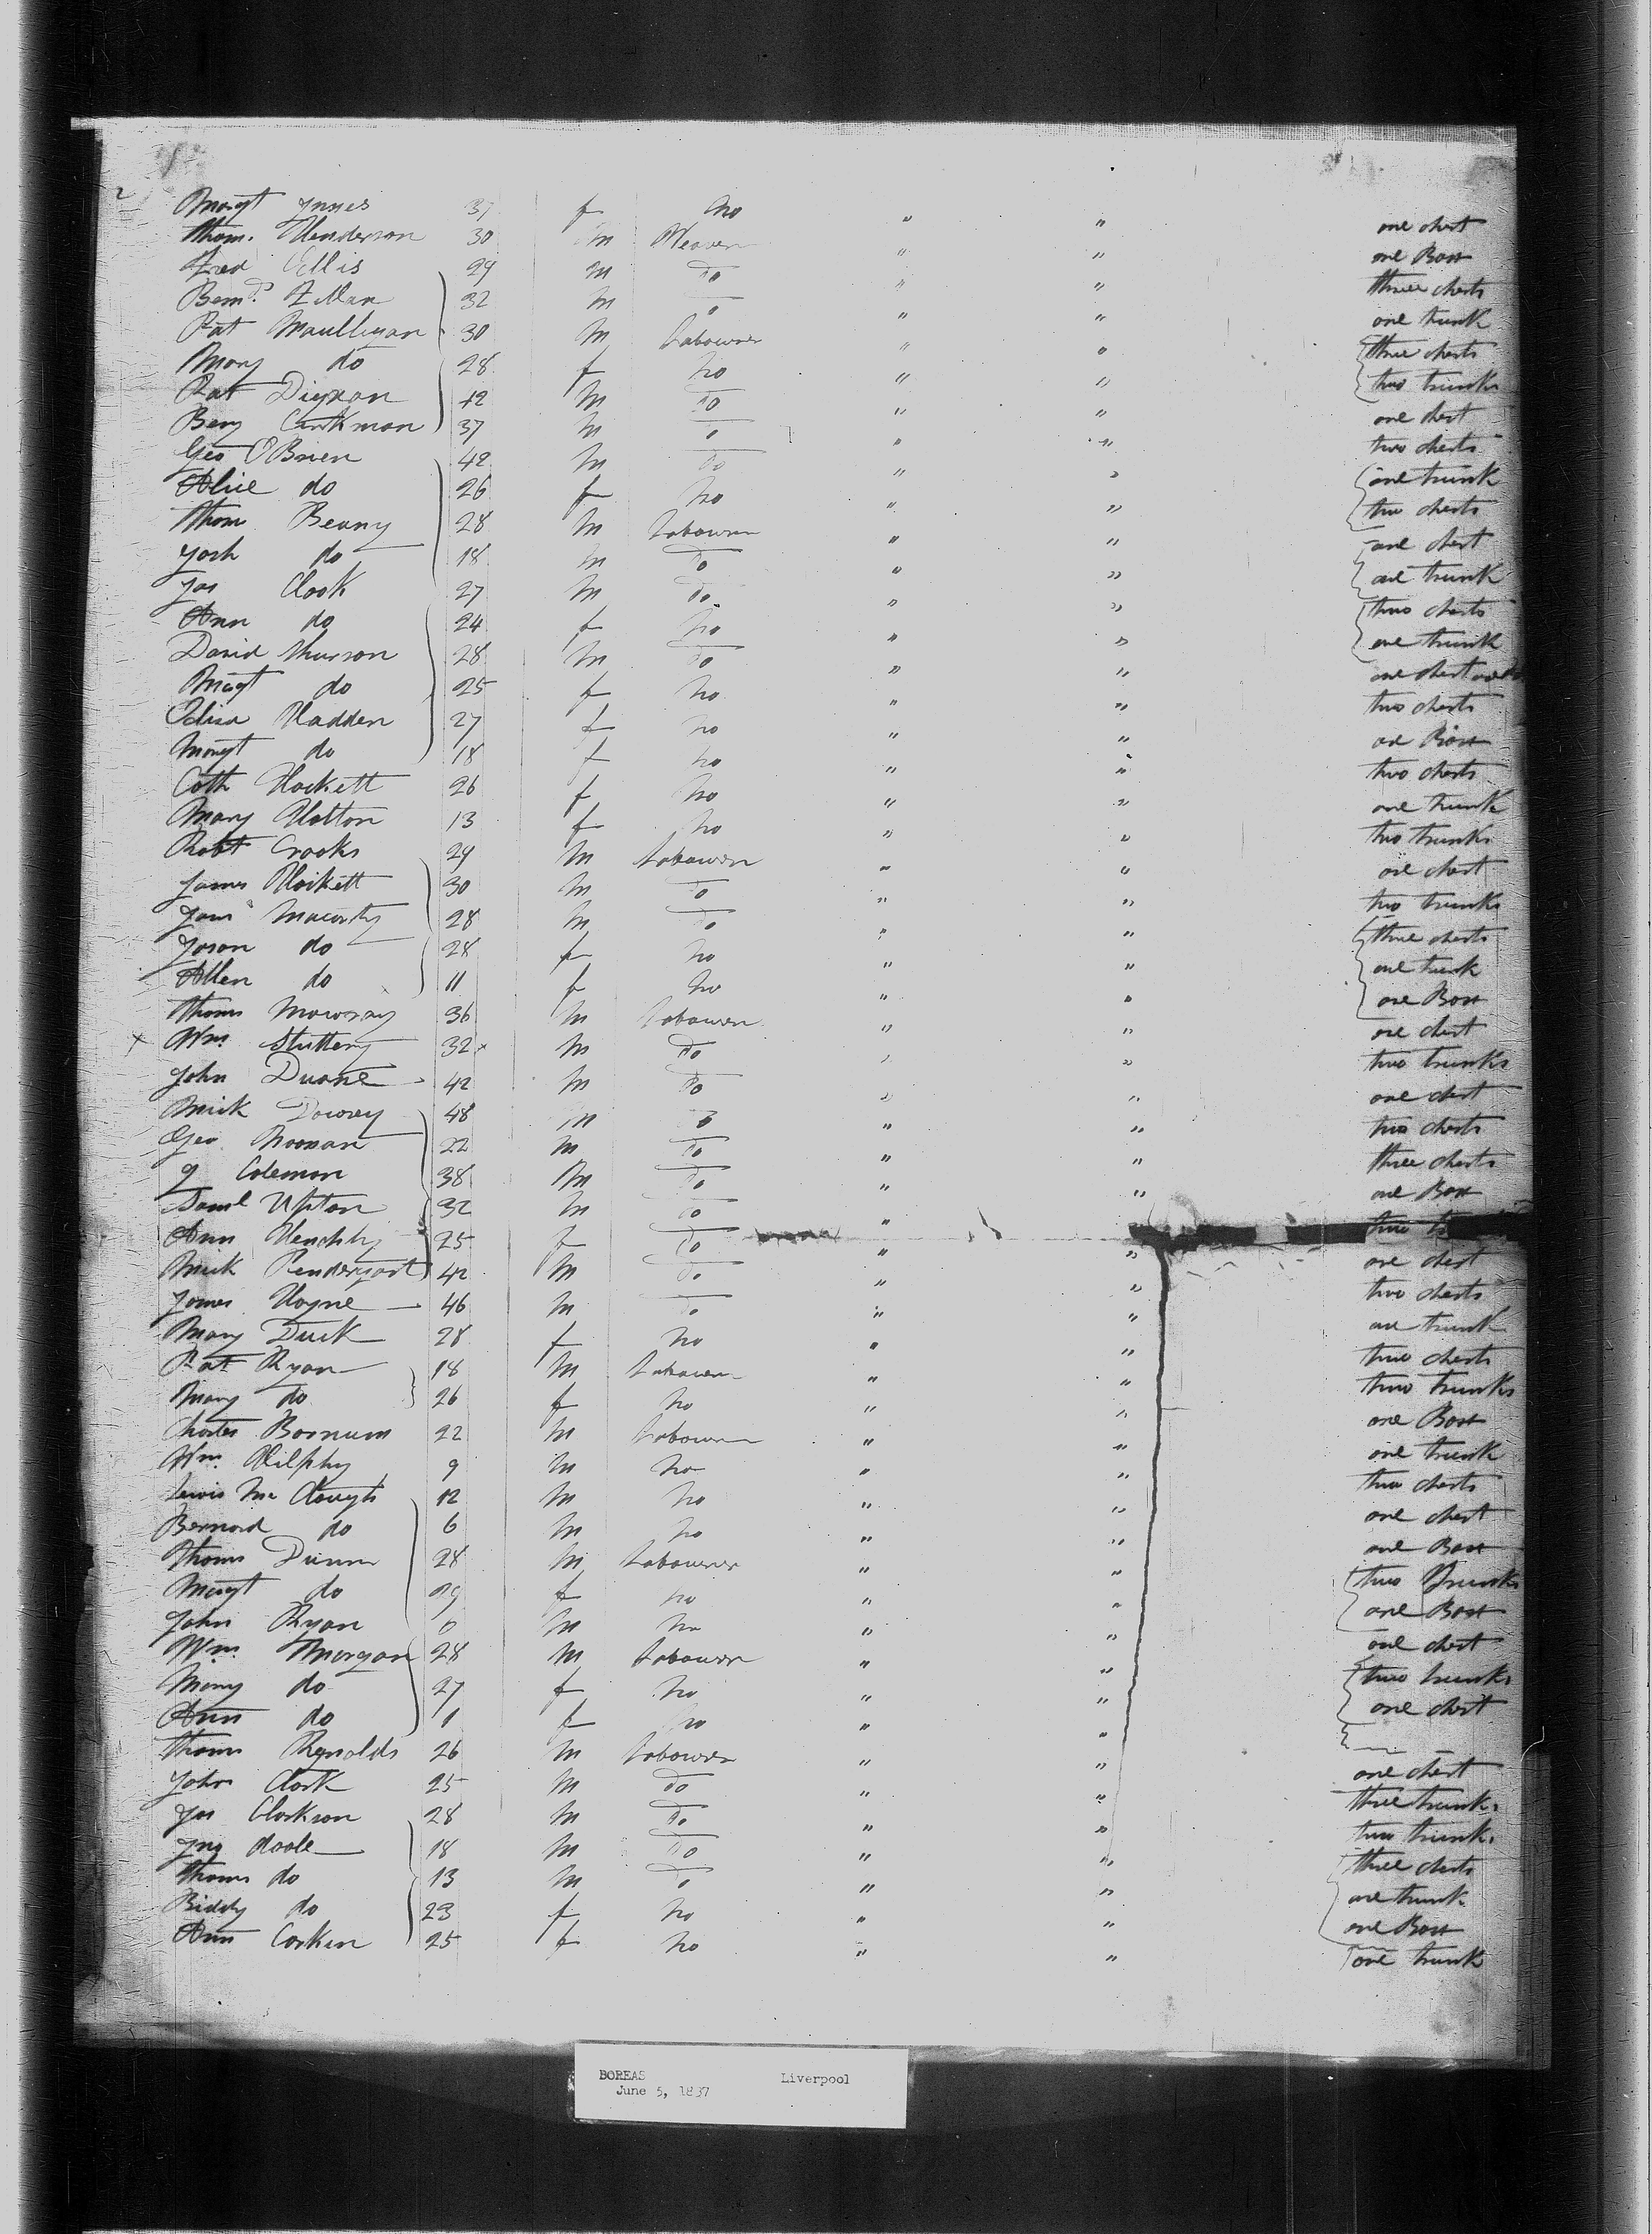 Margt Innes 37 f no " "
Thom. Henderson 30 m Weaver " " one chest
Fred Ellis 29 m Do " " one Box
Bernd 32 m " " " three chests
Pat Maulligan 30 m Labourer " " one trunk
Mary do 28 f no " " three chests
Pat Dignan 42 m Do " " two trunks
Benj Cankman 37 m Do " " one chest
Geo O'Brien 42 m Do " " two chests
Alice do 26 f no " " one trunk
Thom Beany 28 m Labourer " " two chests
Josh do 18 m Do " " one chest
Jas Clook 27 m Do " " one trunk
Ann do 24 f no " " two chests
David Thurson 28 m Do " " one trunk
Margt do 25 f no " " one chest
Eliza Hadden 27 f no " " two chests
Margt do 18 f no " " one Box
Cath Hackett 26 f no " " two chests
Mary Hatton 13 f no " " one trunk
Robt Crooks 24 m Labourer " " two trunks
James Hackett 30 m Do " " one chest
Jams Macarty 28 m Do " " two trunks
Joson do 28 f no " " three chests
Allen do 11 f no " " one trunk
Thoms Mowray 36 m Labourer " " one Box
Wm. Stuttery 32 m Do " " one chest
John Duane 42 m Do " " two trunks
Mick Dowrey 48 m Do " " one chest
Geo Noonan 22 m Do " " two chests
J Coleman 38 m Do " " three chests
Saml Upton 32 m Do " " one Box
Ann 25 f Do " " two
Mick Pendergast 42 m Do " " one chest
James Hayne 46 m Do " " two chests
Mary Duck 28 f no " " one trunk
Pat Ryan 18 m Labourer " " two chests
Mary do 26 f no " " two trunks
Charles Barnum 22 m Labourer " " one Box
Wm. Hilphy 9 m no " " one trunk
Lewis Mc Clough 12 m no " " two chests
Bernard do 6 m no " " one chest
Thoms Dunn 28 m Labourer " " one Box
Margt do 29 f no " " two Trunks
John Ryan 6 m no " " one Box
Wm. Morgan 28 m Labourer " " one chest
Mary do 27 f no " " two trunks
Ann do 1 f no " " one chest
Thoms Reynolds 26 m Labourer " "
John Clark 25 m do " " one chest
Jas Clarkson 28 m Do " " three trunks
Jno doole 18 m Do " " two trunks
Thoms do 13 m Do " " three chests
Biddy do 23 f no " " one trunk
Ann Corken 25 f no " " one Box
one trunk
BOREAS Liverpool
June 5, 1837